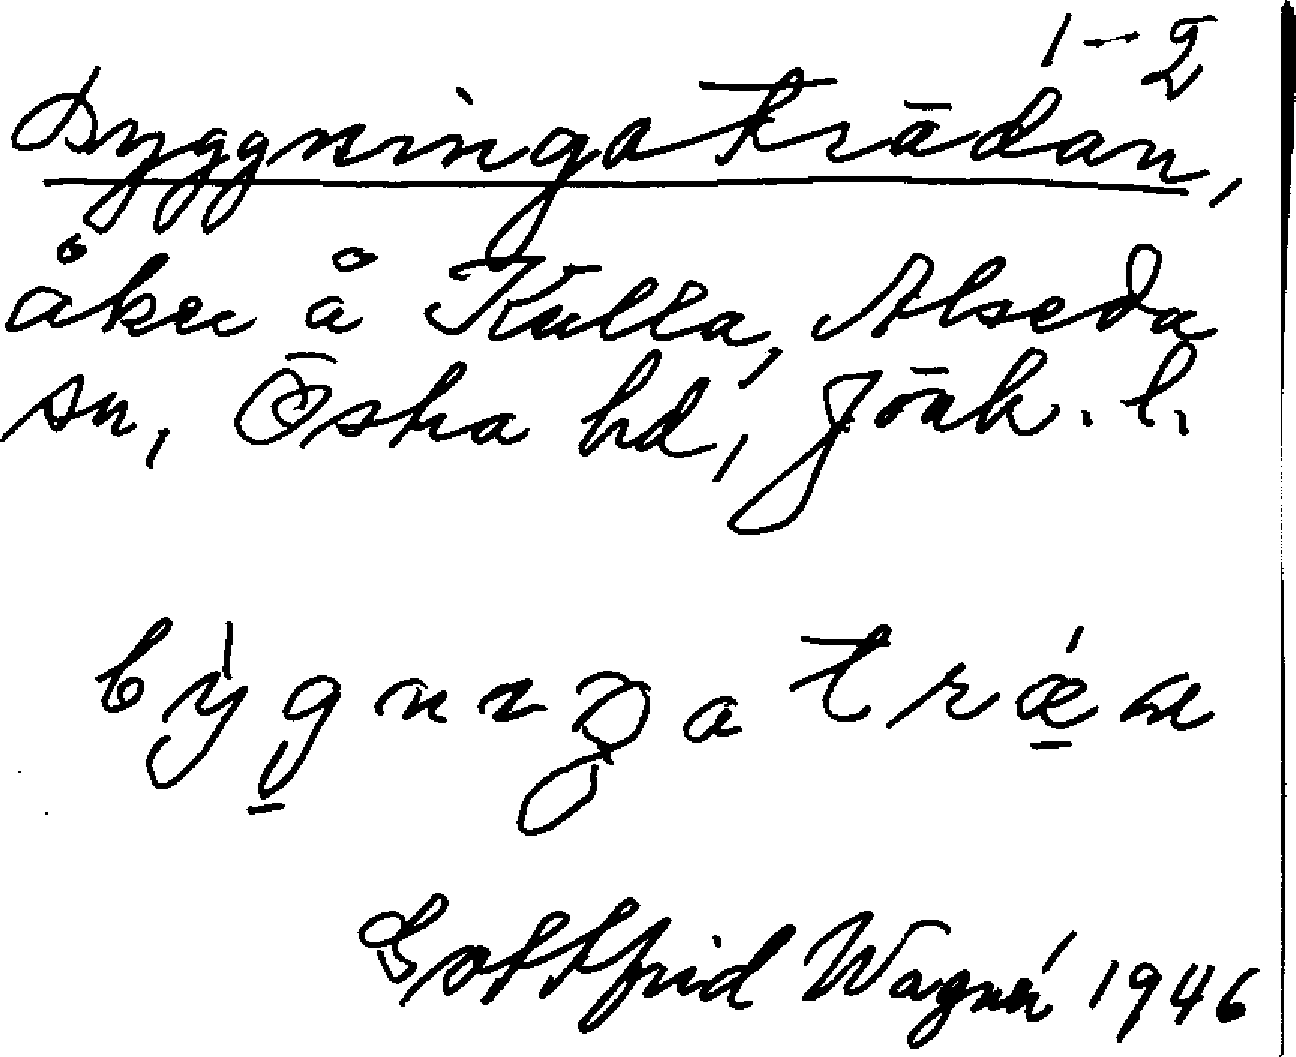 1-2
Byggningaträdan,
åker å Kulla, Alseda
sn, Östra hd, Jönk. l.
býgnıŋa trǽa
Gottfrid Wagnér 1946